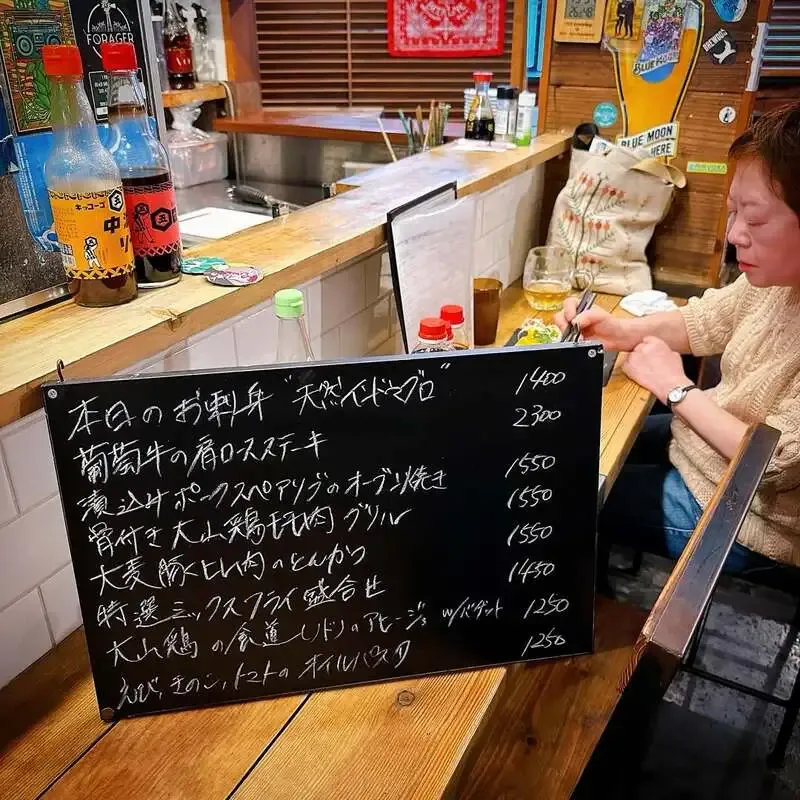 FORAGER
キッコーゴ
中
BLUE MOON
BLUE MOON
HERE
BREWDOG
本日のお刺身 "天然インドマグロ" 1400
葡萄牛の肩ロースステーキ 2300
漬込みポークスペアリブのオーブン焼き 1550
骨付き大山鶏モモ肉グリル 1550
大麦豚ヒレ肉のとんかつ 1550
特選ミックスフライ盛合せ 1450
大山鶏の食道(ノド)のアヒージョ w/バゲット 1250
えび、きのこ、トマトのオイルパスタ 1250